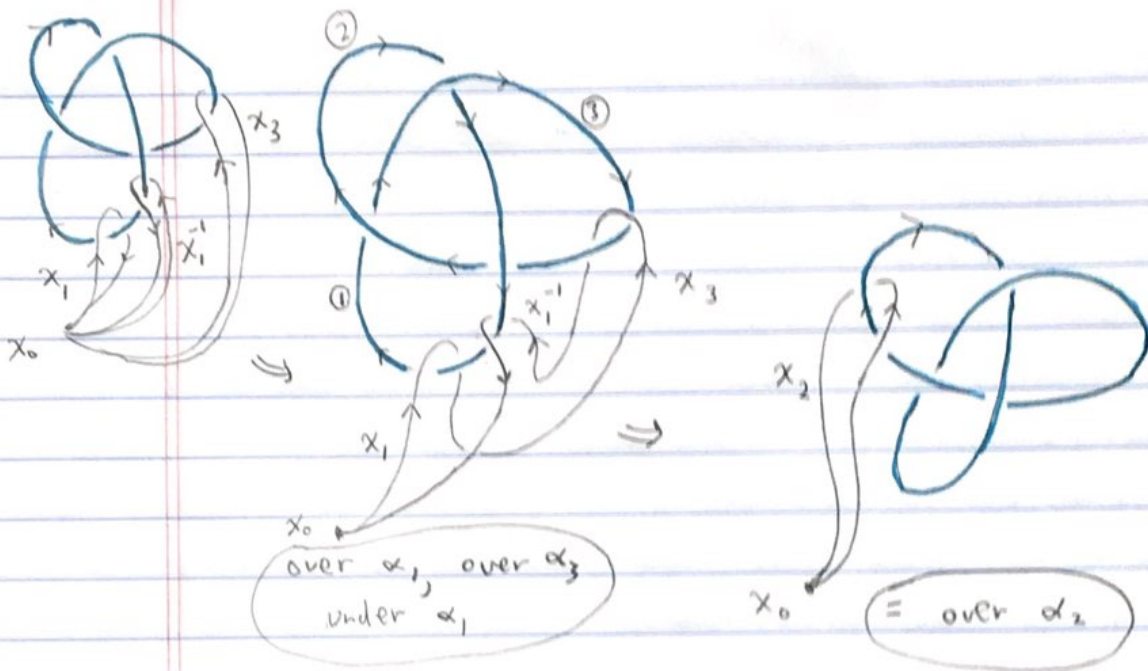 x₃
x₁
x₁⁻¹
x₀
⇒
②
③
①
x₁⁻¹
x₃
x₁
x₀
over α₁, over α₃
under α₁
⇒
x₂
x₀
= over α₂